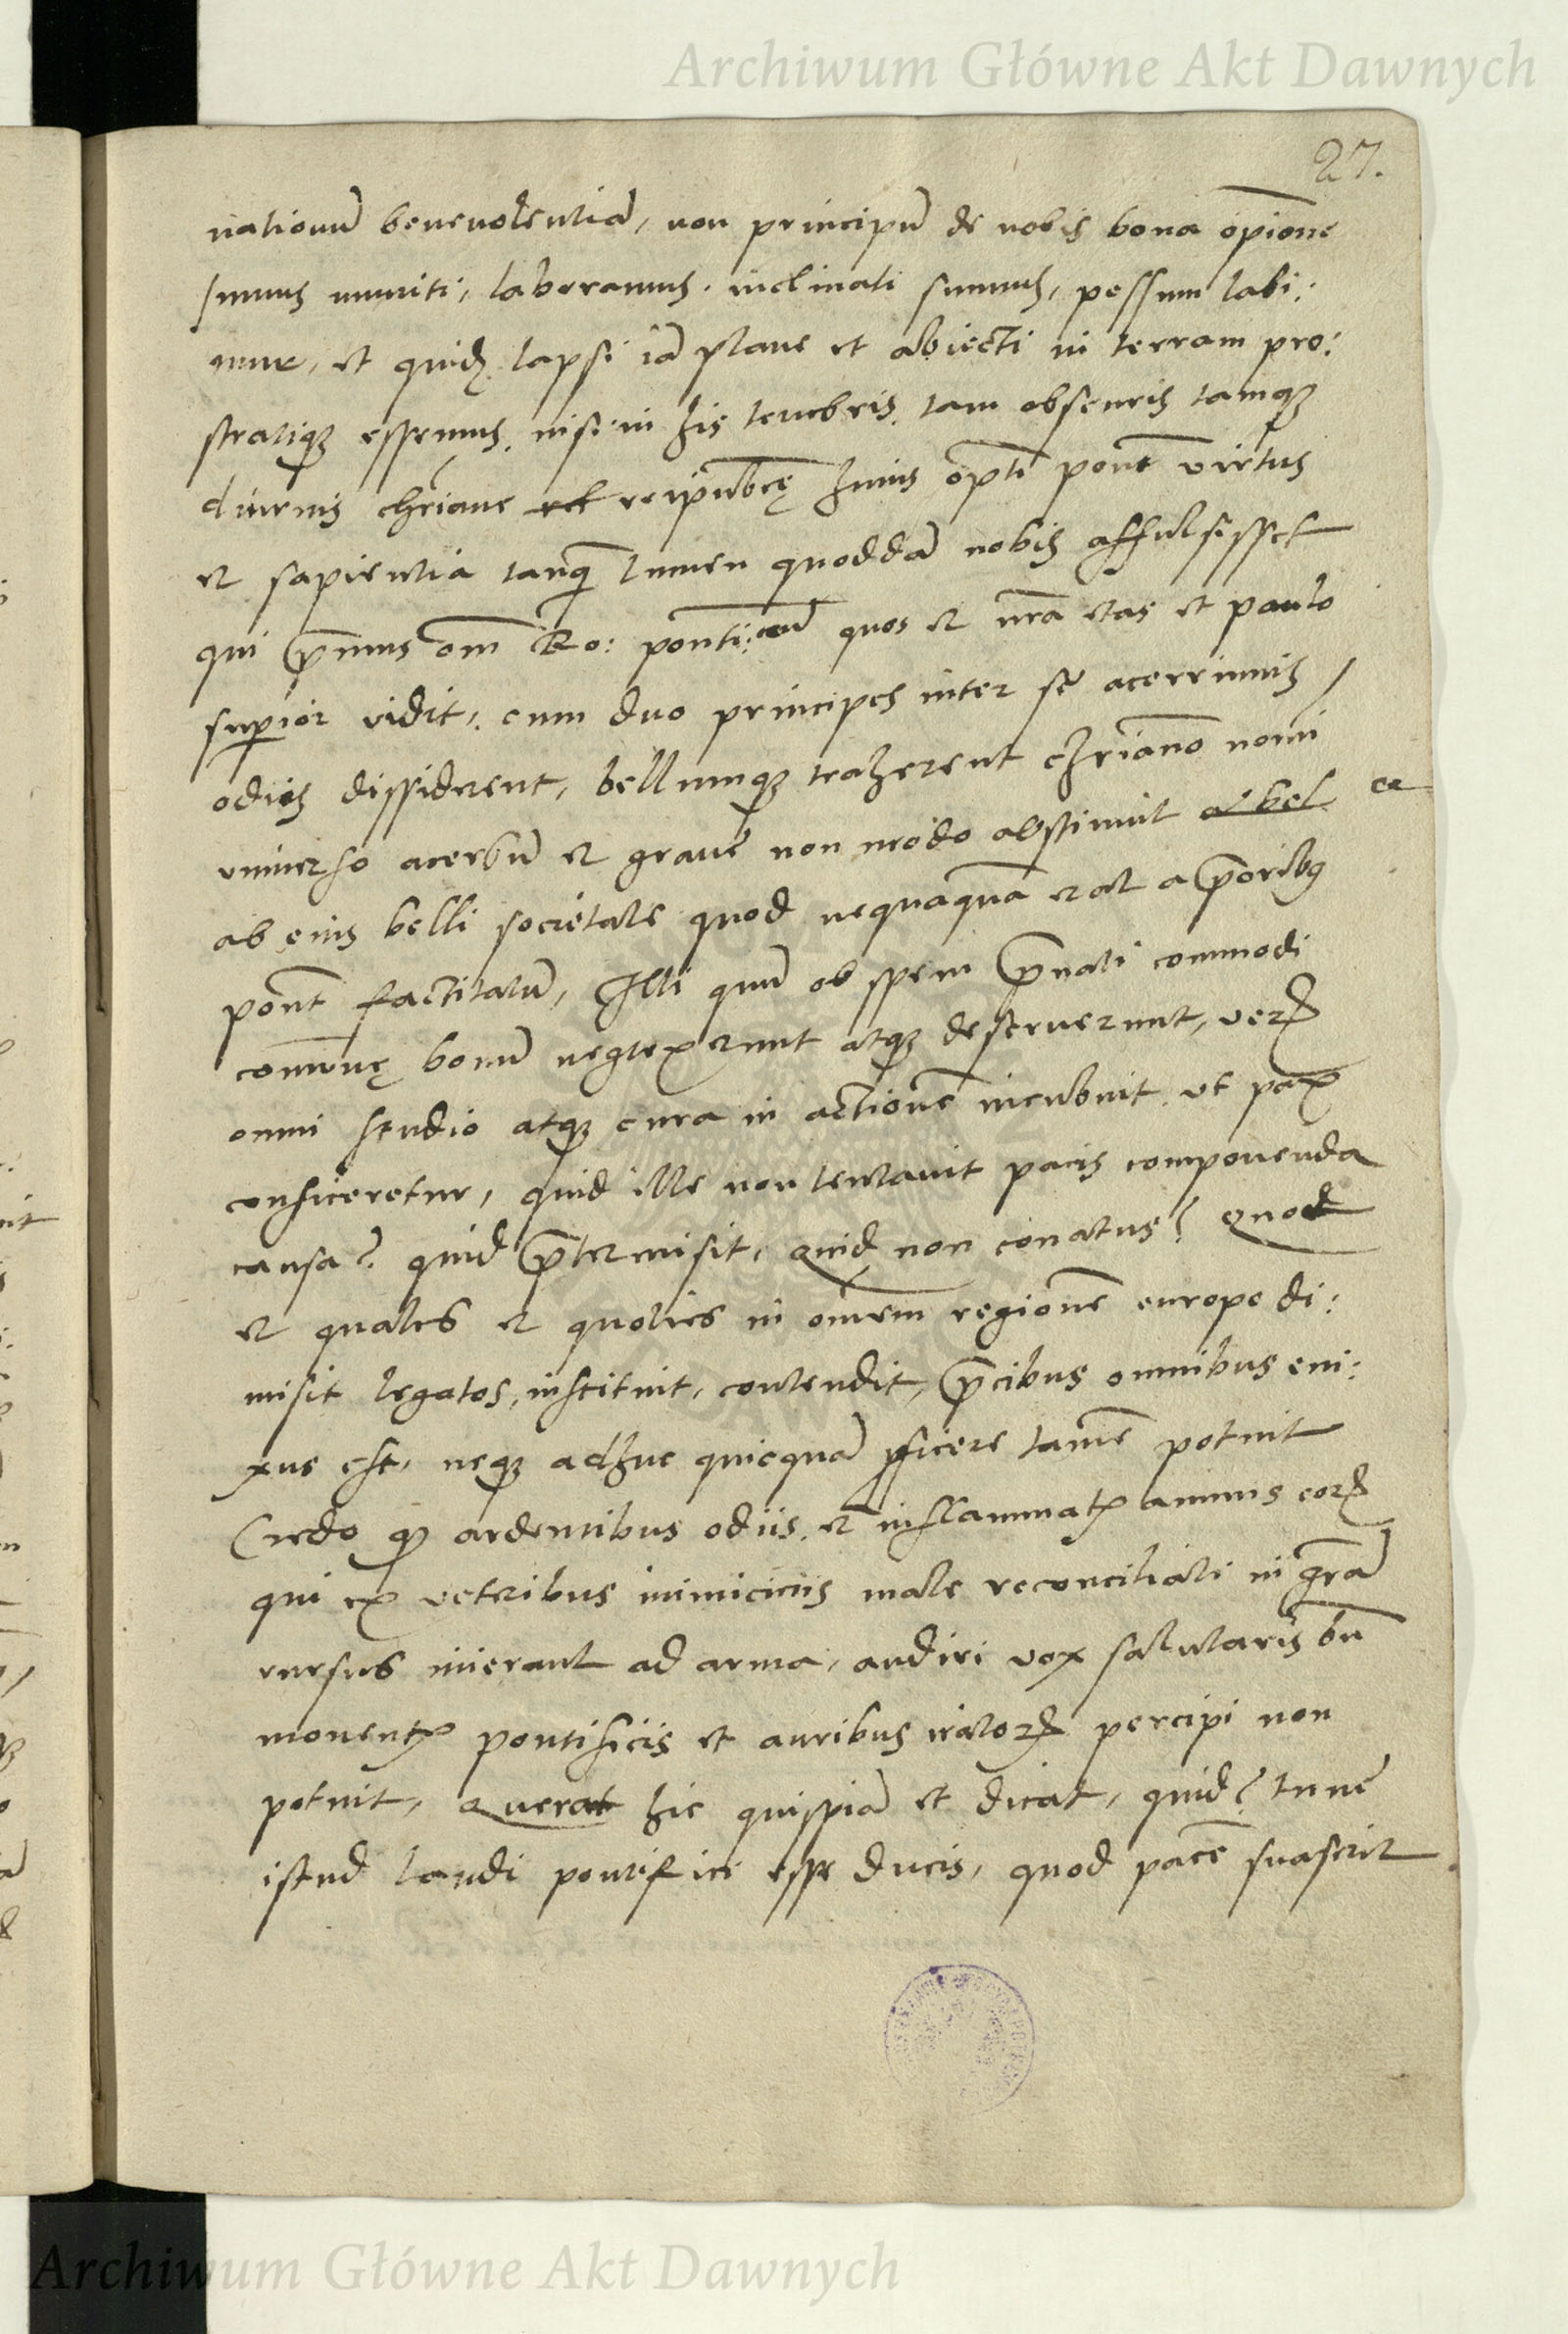 Archiwum Główne Akt Dawnych
27.
nationũ beneuolentiã, non principũ de nobis bona opĩone
sumus muniti, laboramus. inclinati sumus, pessum labi:
mur, et quidẽ lapsi iã plane et abiecti in terram pro:
stratiqꝫ essemus, nisi in his tenebris tam obscuris tamqꝫ
diurnis chr̃iane reipub̃cę huius opt̃i pont̃ virtus
et sapientia tanq̃ lumen quoddã nobis affulsisset
qui p̃mus om̃ Ro: ponti:cũ quos et nr̃a etas et paulo
sup̱ior vidit, cum duo principes inter se acerrimis
odiis dissiderent, bellumqꝫ traherent chr̃iano nomi
vniuerso acerbũ et grauẽ non modo abstinuit a bel et
ab eius belli societate quod nequaquã erat a p̃oribꝰ
pont̃ factitatũ, Illi quũ ob spem p̃uati commodi
commune bonũ neglexerunt atqꝫ deseruerunt, verꝝ
omni studio atqꝫ cura in actionẽ incubuit ut pax
conficeretur, quid ille non tentauit pacis componenda
causa? quid p̃termisit, quid non conatus? quot
et quales et quoties in omnem regionẽ europe di:
misit legatos, instituit, contendit, p̃cibus omnibus eni:
xus est, neqꝫ adhuc quicquã ꝓficere tamẽ potuit
Credo qꝫ ardentibus odiis et inflammatꝭ animis eorꝝ
qui ex veteribus inimiciciis male reconciliati in gr̃am
rursus inierant ad arma, audiri vox salutaris bñ
monentꝭ pontificis et auribus iratorꝝ percipi non
potuit, Querat hic quispiã et dicat, quid? tunẽ
istud laudi pontifici esse ducis, quod pacẽ suaserit
Archiwum Główne Akt Dawnych